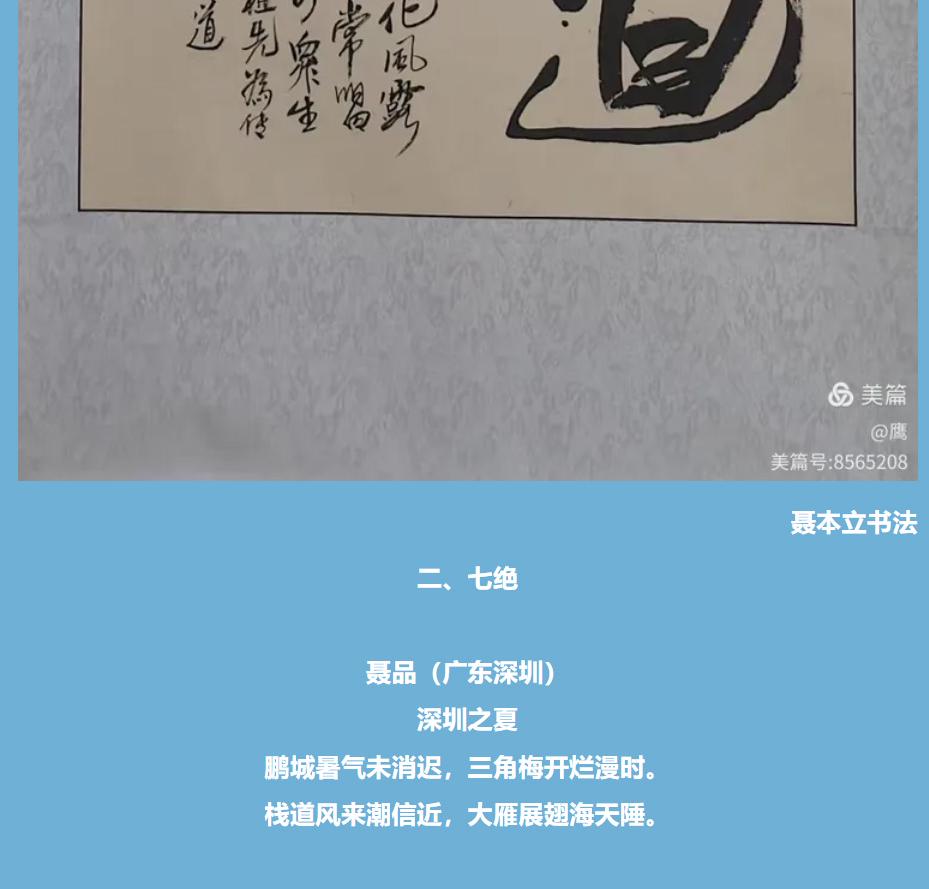 化風露
常明
眾生
祖先為傳
道
道
美篇
@鹰
美篇号:8565208
聂本立书法
二、七绝
聂品（广东深圳）
深圳之夏
鹏城暑气未消迟，三角梅开烂漫时。
栈道风来潮信近，大雁展翅海天陲。